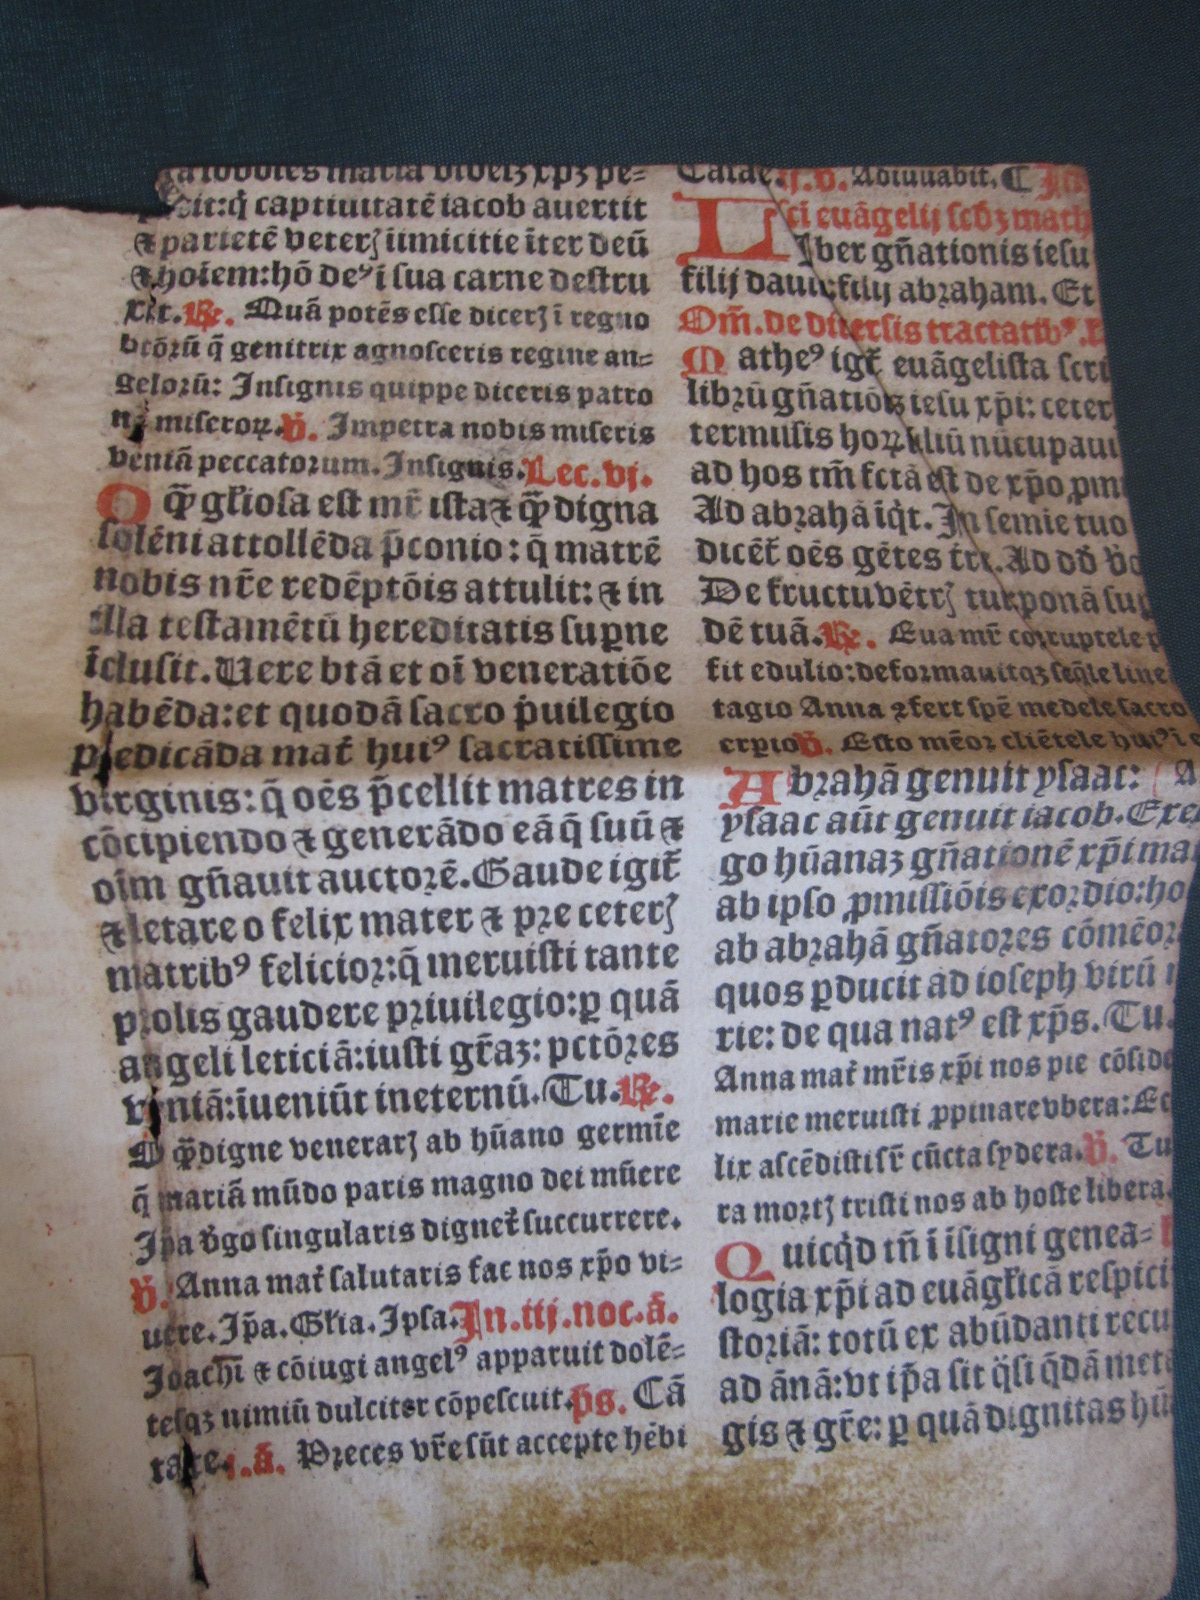 maria videlꝫ xpꝫ pe⸗
it: q̄ captiuitatē iacob auertit
⁊ parietē veterꝭ inimicitie īter deū
⁊ hoīem: hō deꝰ ī sua carne destru
xit. ℟. Quā potēs esse dicerꝭ ī regno
q̄ genitrix agnosceris regine an⸗
gelorū: Insignis quippe diceris patro
na miseroꝝ. ℣. Impetra nobis miseris
veniā peccatorum. Insignis. Lec. vj.
O ꝙ̄ gl̄iosa est mr̄ ista ⁊ ꝙ̄ digna
solēni attollēda p̄conio: q̄ matrē
nobis nr̄e redēptōis attulit: ⁊ in
illa testamētū hereditatis supne
īclusit. Uere btā et oī veneratiōe
habēda: et quodā sacro p̄uilegio
predicāda mat̄ huiꝰ sacratissime
virginis: q̄ oēs p̄cellit matres in
cōcipiendo ⁊ generādo eā q̄ suū ⁊
oīm gn̄auit auctorē. Gaude igit̄
⁊ letare o felix mater ⁊ pre ceterꝭ
matribꝰ felicior: q̄ meruisti tante
prolis gaudere priuilegio: ꝑ quā
angeli leticiā: iusti gr̄aꝫ: pctōres
veniā: īueniūt ineternū. Tu. ℟.
O ꝙ̄ digne venerarꝭ ab hūano germīe
q̄ mariā mūdo paris magno dei mūere
Ip̄a v̄go singularis dignet̄ succurrere.
℣. Anna mat̄ salutaris fac nos xp̄o vi⸗
uere. Ip̄a. Gl̄ia. Ipsa. In. iij. noc. ā.
Joachī ⁊ cōiugi angelꝰ apparuit dolē⸗
tesqꝫ nimiū dulciter cōpescuit. p̄s. Cā
tate. ā. Preces vr̄e sūt accepte hēbi
Catae. Adiuuabit. ¶
sci euāgelij scd̄ꝫ math
Liber gn̄ationis iesu
filij dauid filij abraham. Et
Om̄. de diuersis tractatibꝰ.
Matheꝰ igit̄ euāgelista scri
librū gn̄atiōis iesu xp̄i: ceter
termissis hoꝝ filiū nūcupaui
ad hos tm̄ fctā est de xp̄o ꝓm
Ad abrahā īq̇t. In semie tuo
dicēt̄ oēs gētes tr̄e. Ad dd̄
De fructu vētrꝭ tui ponā sup
dē tuā. ℟. Eua mr̄ corruptele
fit edulio: deformauitqꝫ seq̄le line
tagio Anna ꝛfert spē medele sacro
erpio ℣. Esto mēor cliētele huiꝰ ī
Abrahā genuit ysaac: A
ysaac aūt genuit iacob. Exe
go hūanaꝫ gn̄ationē xp̄i ma
ab ipso ꝓmissiōis exordio: ho
ab abrahā gn̄atores cōmēor
quos ꝑducit ad ioseph virū
rie: de qua natꝰ est xp̄s. Tu.
Anna mat̄ mr̄is xp̄i nos pie cōside
marie meruisti ꝓpinare vbera: Ec
lix ascēdisti sr̄ cūcta sydera. ℣. Tu
ra mortꝭ tristi nos ab hoste libera.
Quicq̇d tn̄ ī īsigni genea⸗
logia xp̄i ad euāgl̄icā respici
storiā: totū ex abūdanti recu
ad ānā: vt ip̄a sit q̄si q̄dā meta
gis ⁊ gr̄e: ꝑ quā dignitas hū